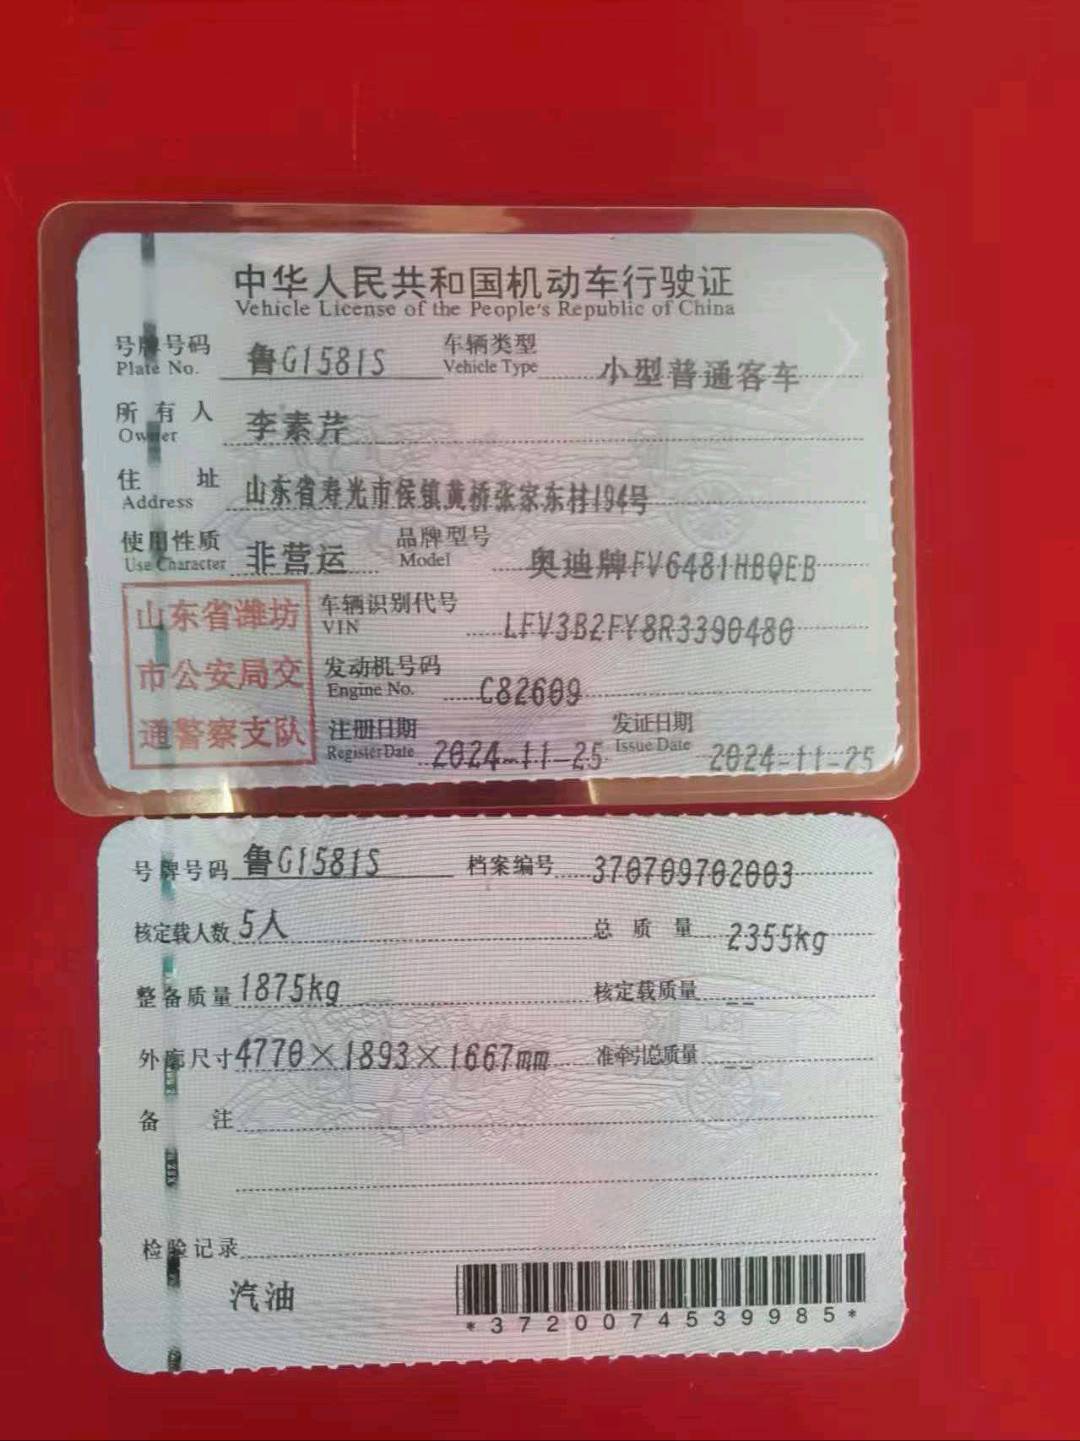 中华人民共和国机动车行驶证
Vehicle License of the People's Republic of China
号牌号码 鲁G1581S 车辆类型 小型普通客车
Plate No. Vehicle Type
所有人 李素芹
Owner
住址 山东省寿光市侯镇黄桥张家东村194号
Address
使用性质 非营运 品牌型号 奥迪牌FV6481HBQEB
Use Character Model
山东省潍坊
市公安局交
通警察支队
车辆识别代号 LFV3B2FY8R3390480
VIN
发动机号码 C82609
Engine No.
注册日期 2024-11-25 发证日期 2024-11-25
Register Date Issue Date
号牌号码 鲁G1581S 档案编号 370709702003
核定载人数 5人 总质量 2355kg
整备质量 1875kg 核定载质量 --
外廓尺寸 4770×1893×1667mm 准牵引总质量 --
备注
检验记录
汽油
*3720074539985*